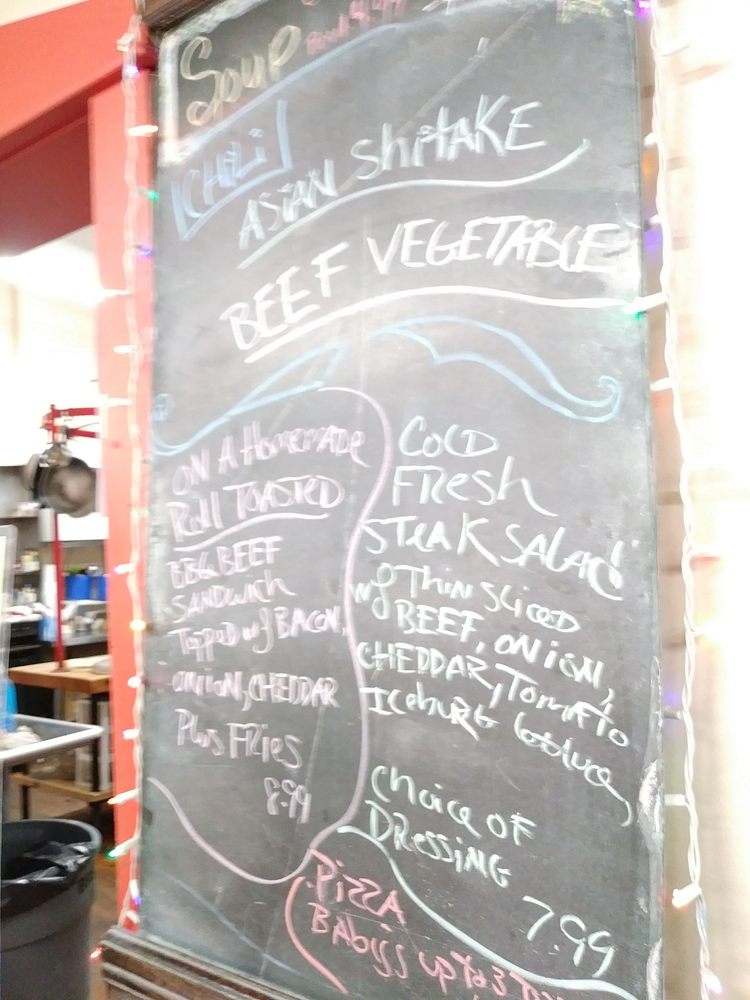 Soup
Bowl 4.99
CHiLi
ASiAN ShitAKE
BEEF VEGETABLE
ON A HomEmADE
Roll TOASTED
BBQ BEEF
SANDWich
Topped w/ BACON,
ONiON, CHEDDAR
Plus FRies
8.99
COLD
FResh
STeaK SALAD
w/ THiN SLiCED
BEEF, ONiON,
CHEDDAR, TomATO
IcebuRG Lettuce,
Choice OF
DRessiNG
7.99
PizzA
BABy's up To 3